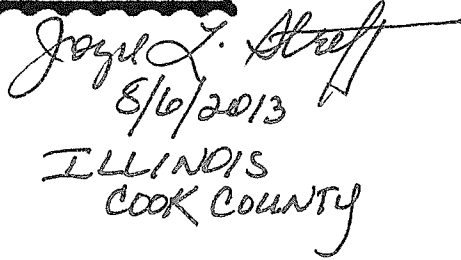 Joyce L.
8/6/2013
ILLINOIS
COOK COUNTY